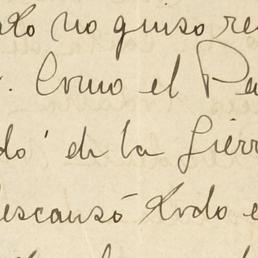 no quiso re
. Como el Pe
do' de la Sierr
descansó todo e